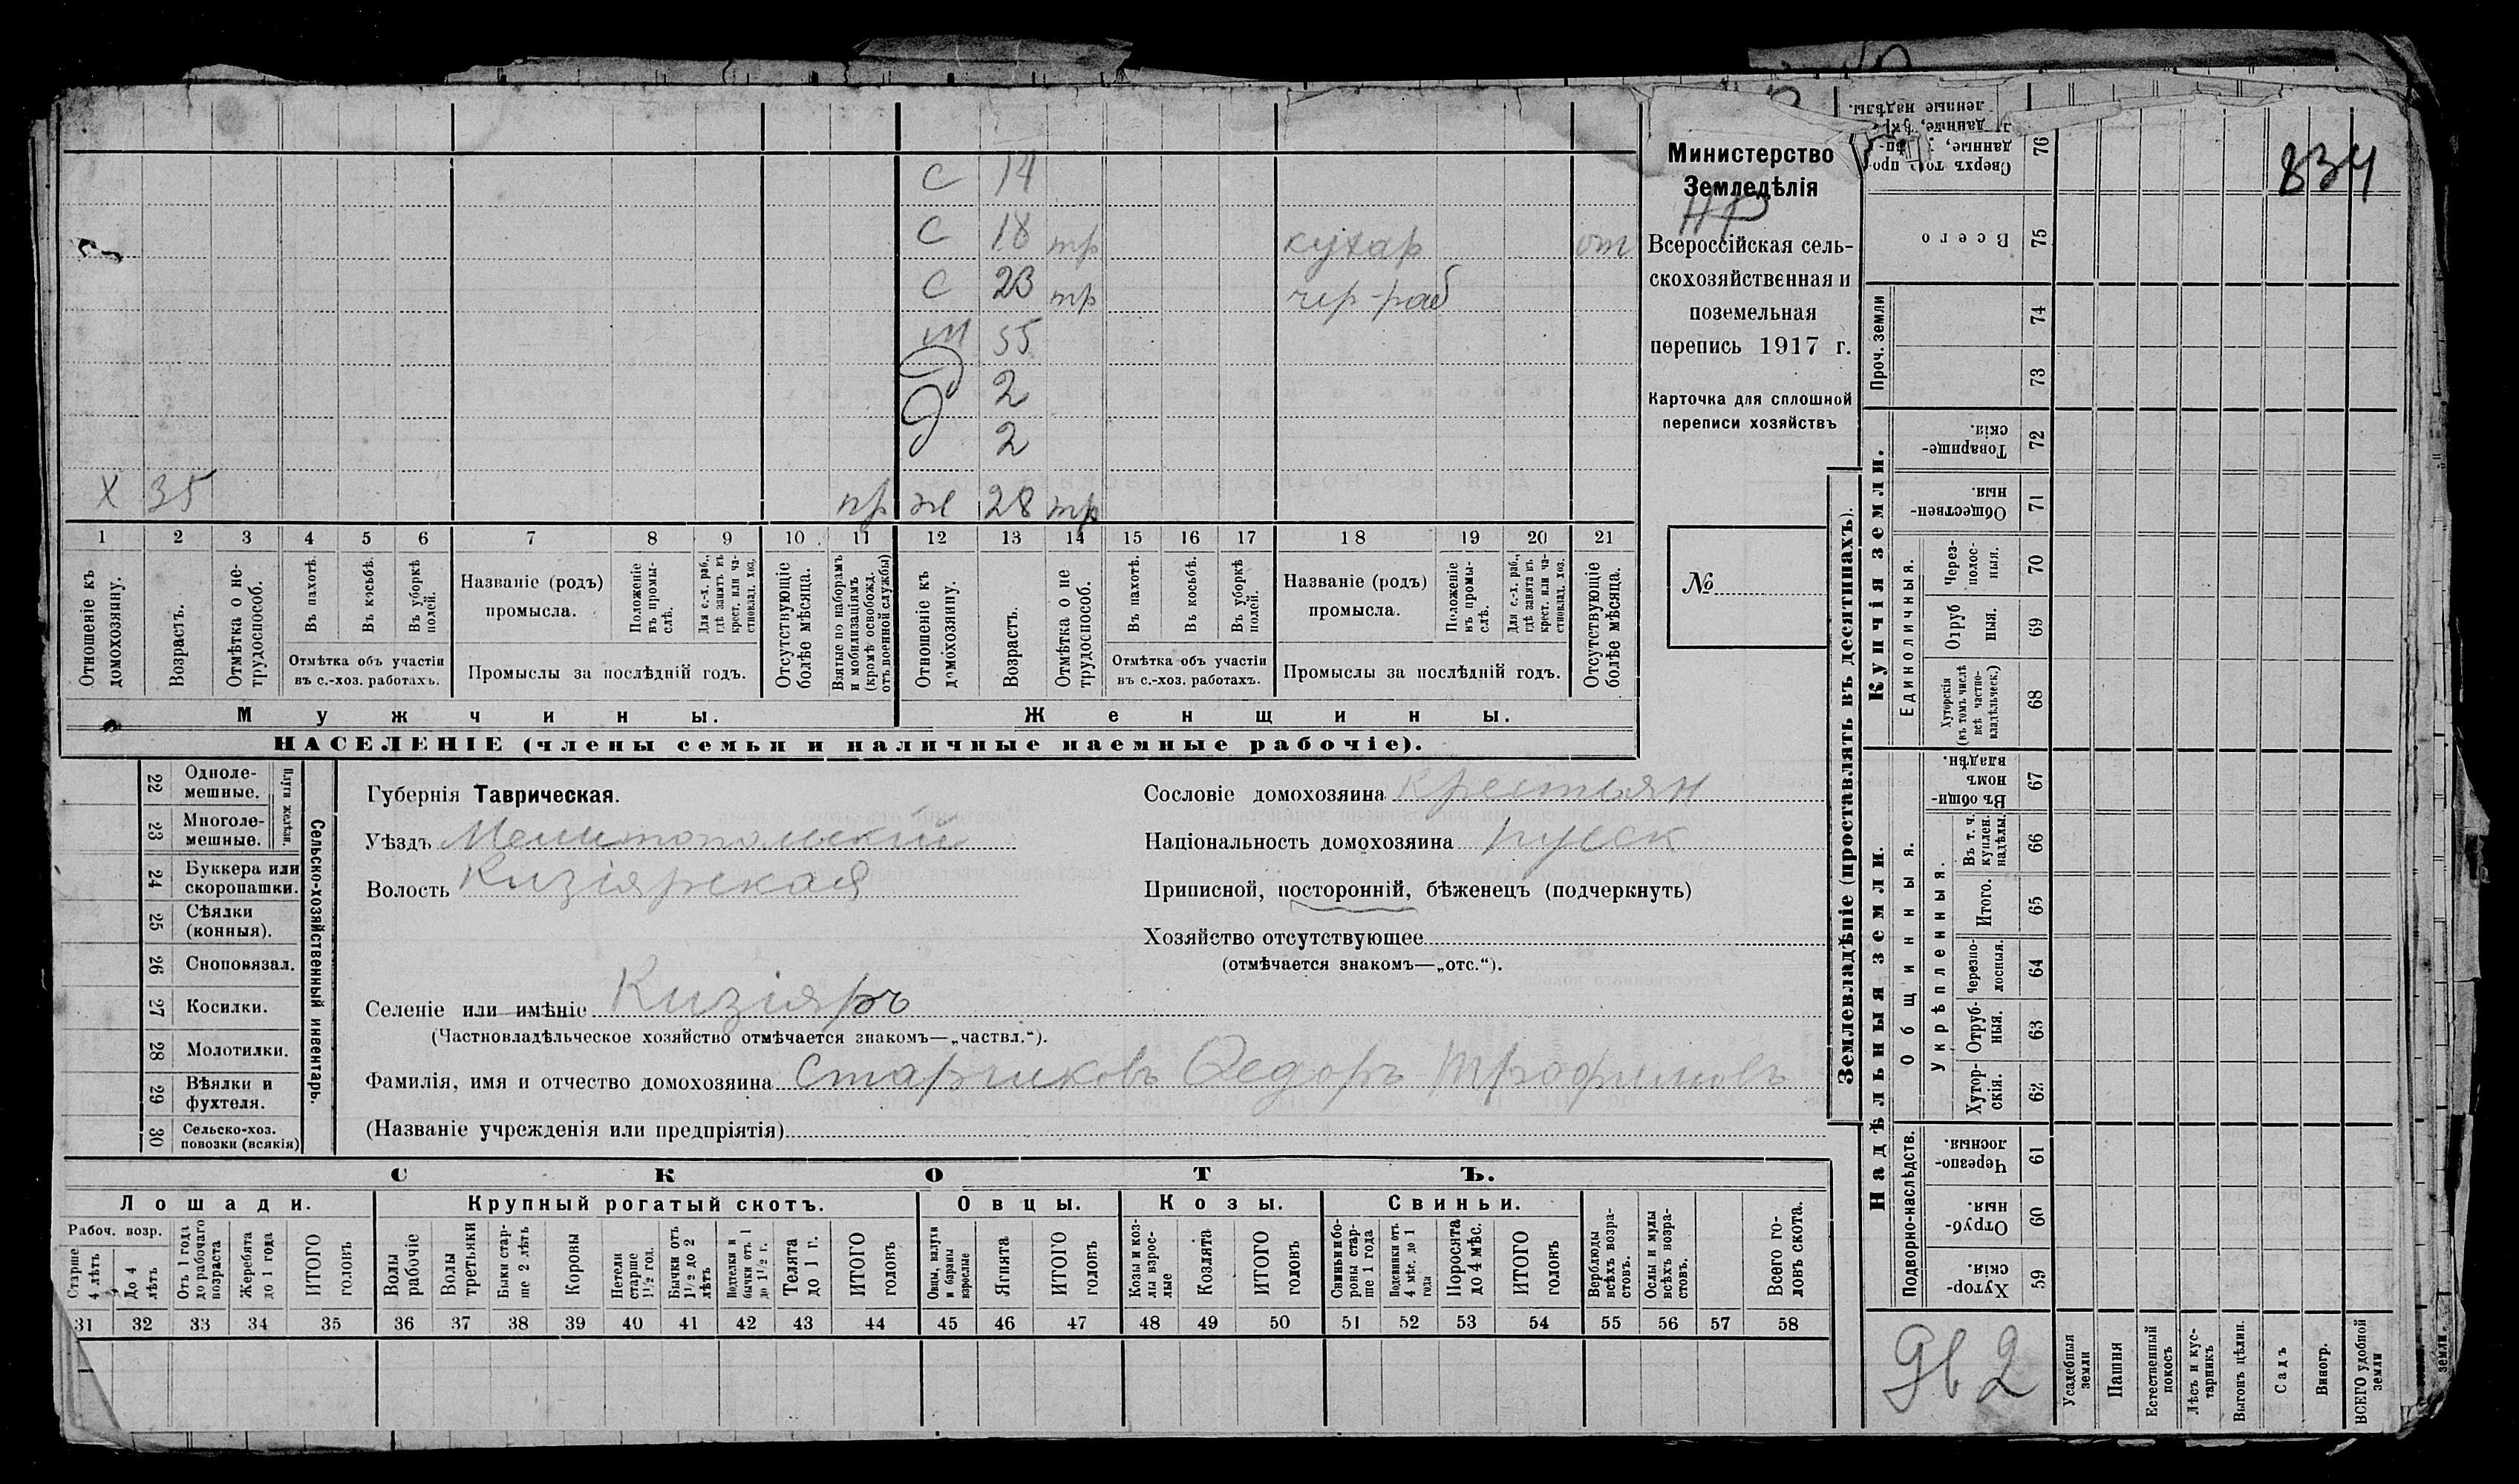 834
с 14
с 18 тр кухар от
с 23 тр чер-раб
м 55
д 2
д 2
х 35 пр же 28 тр
1 2 3 4 5 6 7 8 9 10 11 12 13 14 15 16 17 18 19 20 21
Отношеніе къ домохозяину.
Возрастъ.
Отмѣтка о не-трудоспособ.
Въ пахотѣ.
Въ косьбѣ.
Въ уборкѣ полей.
Отмѣтка объ участіи въ с.-хоз. работахъ.
Названіе (родъ) промысла.
Положеніе въ промы-слѣ.
Для с.-х. раб., гдѣ занятъ въ крест. или ча-стновлад. хоз.
Промыслы за послѣдній годъ.
Отсутствующіе болѣе мѣсяца.
Взятые по наборамъ и мобилизаціямъ (кромѣ освобожд. отъ военной службы)
Отношеніе къ домохозяину.
Возрастъ.
Отмѣтка о не трудоспособ.
Въ пахотѣ.
Въ косьбѣ.
Въ уборкѣ полей.
Отмѣтка объ участіи въ с.-хоз. работахъ.
Названіе (родъ) промысла.
Положеніе въ промы-слѣ.
Для с.-х. раб., гдѣ занята въ крест. или ча-стновлад. хоз.
Промыслы за послѣдній годъ.
Отсутствующіе болѣе мѣсяца.
Мужчины.
Женщины.
НАСЕЛЕНІЕ (члены семьи и наличные наемные рабочіе).
Министерство
Земледѣлія
Всероссійская сель-
скохозяйственная и
поземельная
перепись 1917 г.
Карточка для сплошной
переписи хозяйствъ
№
Сельско-хозяйственный инвентарь.
Плуги желѣзн.
22 Одноле-мешные.
23 Многоле-мешные.
24 Буккера или скоропашки.
25 Сѣялки (конныя).
26 Сноповязал.
27 Косилки.
28 Молотилки.
29 Вѣялки и фухтеля.
30 Сельско-хоз. повозки (всякія)
Губернія Таврическая.
Уѣздъ Мелитопольскій
Волость Кизіярская
Селеніе или имѣніе Кизіяръ
(Частновладѣльческое хозяйство отмѣчается знакомъ—„частвл.“).
Фамилія, имя и отчество домохозяина Стариковъ Федоръ Трофимовъ
(Названіе учрежденія или предпріятія)
Сословіе домохозяина Крестьян
Національность домохозяина русск
Приписной, посторонній, бѣженецъ (подчеркнуть)
Хозяйство отсутствующее
(отмѣчается знакомъ—„отс.“).
СКОТЪ.
Лошади.
Крупный рогатый скотъ.
Овцы.
Козы.
Свиньи.
Рабоч. возр.
Старше 4 лѣтъ
До 4 лѣтъ
Отъ 1 года до рабочаго возраста
Жеребята до 1 года
ИТОГО головъ
Волы рабочіе
Волы третьяки
Быки стар-ше 2 лѣтъ
Коровы
Нетели старше 1 1/2 год.
Бычки отъ 1 1/2 до 2 лѣтъ
Подтелки и бычки отъ 1 до 1 1/2 г.
Телята до 1 г.
ИТОГО головъ
Овцы, валухи и бараны взрослые
Ягнята
ИТОГО головъ
Козы и коз-лы взрос-лые
Козлята
ИТОГО головъ
Свиньи и бо-ровы стар-ше 1 года
Подсвинки отъ 4 мѣс. до 1 года
Поросята до 4 мѣс.
ИТОГО головъ
Верблюды всѣхъ возра-стовъ.
Ослы и мулы всѣхъ возра-стовъ.
Всего го-ловъ скота.
31 32 33 34 35 36 37 38 39 40 41 42 43 44 45 46 47 48 49 50 51 52 53 54 55 56 57 58
Землевладѣніе (проставлять въ десятинахъ).
Надѣльныя земли.
Купчія земли.
Проч. земли
76
Всего 75
74
73
Товарище-скія. 72
Обществен-ныя. 71
Единоличныя.
Черезполос-ныя. 70
Отруб ныя. 69
Хуторскія (въ томъ числѣ всѣ частно-владѣльческ.) 68
Общинныя.
Въ общи-номъ владѣн. 67
Укрѣпленныя.
Въ т. ч. куплен. надѣлы. 66
Итого. 65
Черезпо-лосныя. 64
Отруб-ныя. 63
Хутор-скія. 62
Подворно-наслѣдств.
Черезпо-лосныя. 61
Отруб-ныя. 60
Хутор-скія. 59
Дв 2
Усадебныя земли
Пашня
Естественный покосъ
Лѣсъ и кус-тарникъ
Выгонъ цѣлин.
Садъ
Виногр.
ВСЕГО удобной земли
земли.